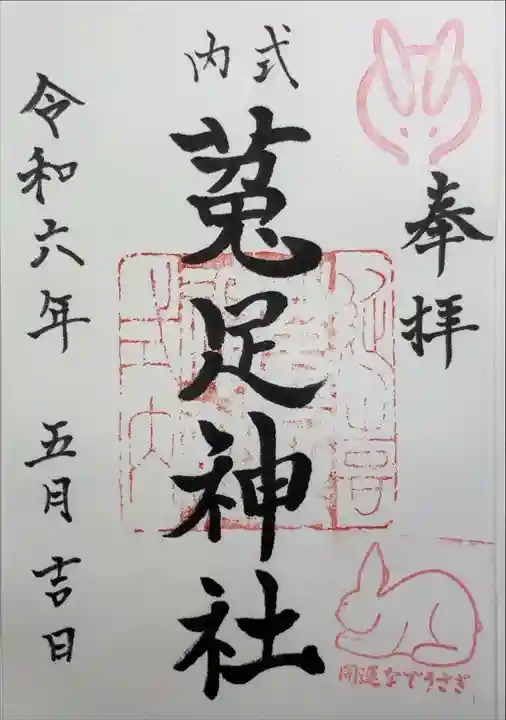 奉拝
式内
菟足神社
令和六年 五月吉日
開運なでうさぎ